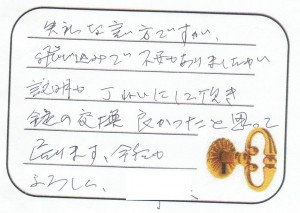 失礼な言い方ですが、
飛び込みで不安もありましたが
説明も丁ねいにして頂き
鍵の交換良かったと思って
居ります、今后も
よろしく、